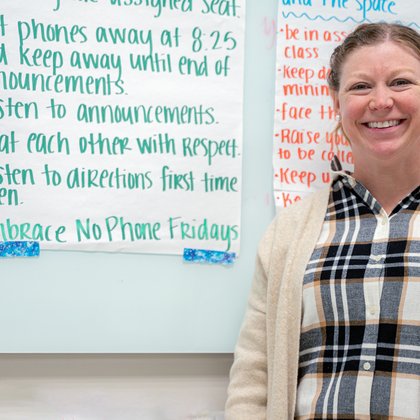 assigned seat.
phones away at 8:25
keep away until end of
nnouncements.
sten to announcements.
at each other with respect.
sten to directions first time
en.
mbrace No Phone Fridays
and the space
• be in ass
class
• Keep d
minin
• face th
• Raise you
to be calle
• Keep u
• Ke